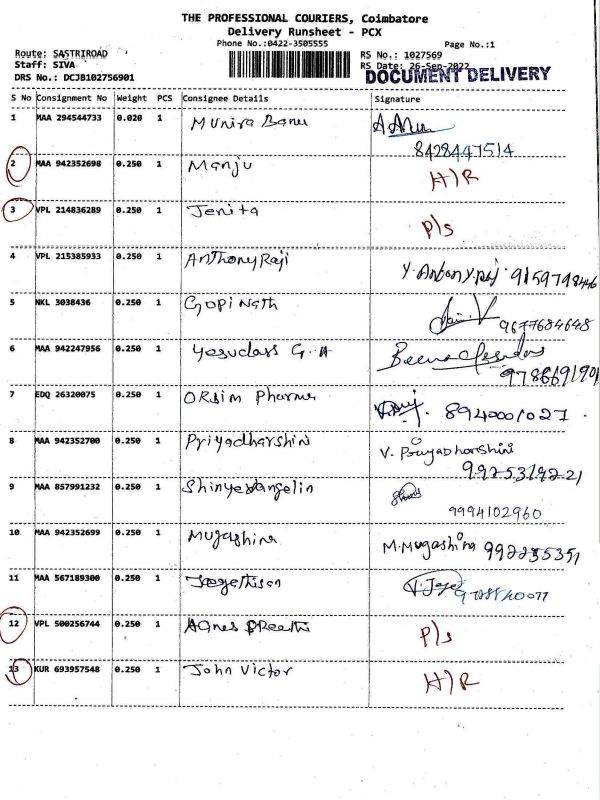 THE PROFESSIONAL COURIERS, Coimbatore
Delivery Runsheet - PCX
Phone No.:0422-3505555
Page No.:1
Route: SASTRIROAD
Staff: SIVA
DRS No.: DCJB102756901
RS No.: 1027569
RS Date: 26-Sep-2022
DOCUMENT DELIVERY
S No Consignment No Weight PCS Consignee Details Signature
1 MAA 294544733 0.020 1 Munira Banu
8428447514
2 MAA 942352698 0.250 1 Manju H)R
3 VPL 214836289 0.250 1 Jenita P/s
4 VPL 215385933 0.250 1 Anthony Raji Y. Antony raj 9159798446
5 NKL 3038436 0.250 1 Gopi Nath
9677684648
6 MAA 942247956 0.250 1 Yesudass G.A
7 EDQ 26320075 0.250 1 ORsim Pharma 8940001027.
8 MAA 942352700 0.250 1 Priyadharshini V. Priyadharshini
9 MAA 857991232 0.250 1 Shinyevangelin
9994102960
10 MAA 942352699 0.250 1 Mugashina M.Mugashina
11 MAA 567189300 0.250 1
12 VPL 500256744 0.250 1 Agnes Preethi P/s
13 KUR 693957548 0.250 1 John Victor H)R